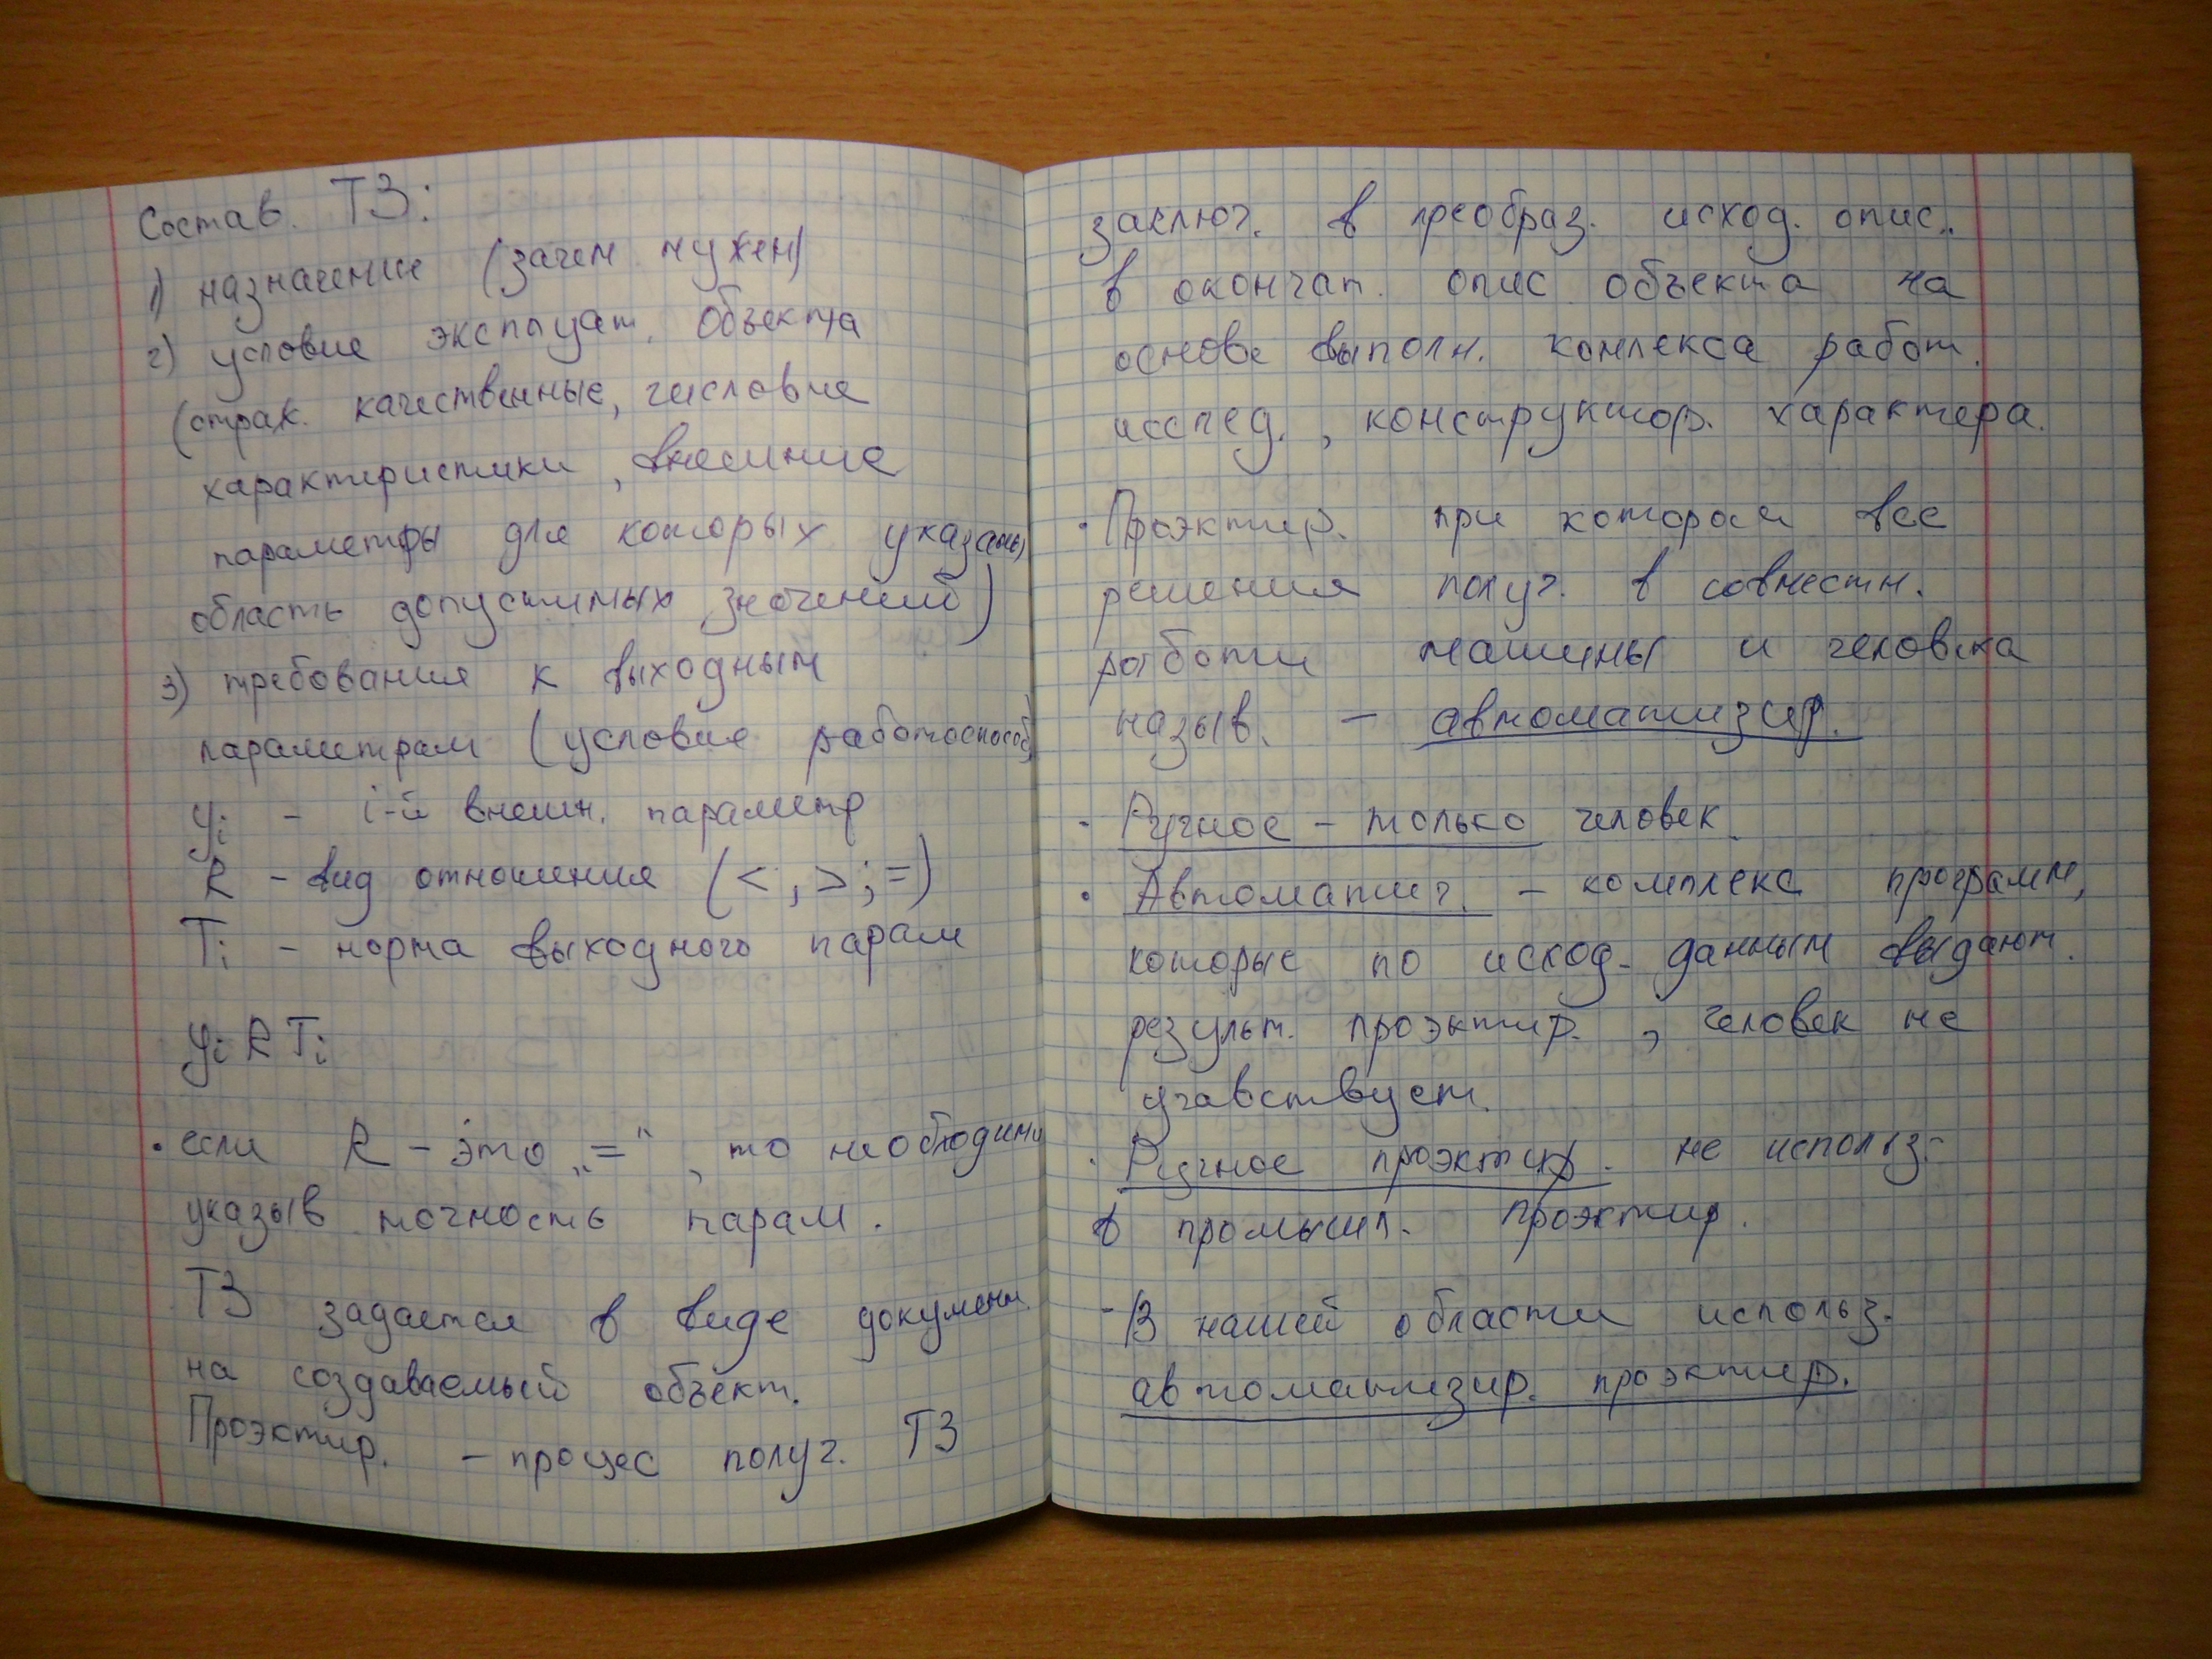 Состав. ТЗ:
1) назначение (зачем нужен)
2) условие эксплуат. Объекта
(отраж. качественные, числовые
характеристики, внешние
параметры для которых указаны
область допустимых значений)
3) требования к выходным
параметрам (условие работоспособ)
yi - i-й внешн. параметр
R - вид отношения (<, >; =)
Ti - норма выходного парам
yi R Ti
• если R - это „=“, то необходимо
указыв точность парам.
ТЗ задается в виде документ
на создаваемый объект.
Проэктир. - процес получ. ТЗ
заключ. в преобраз. исход. опис.
в окончат. опис объекта на
основе выполн. комлекса работ.
исслед., конструктор. характера.
• Проэктир. при котором все
решения получ. в совместн.
работы машины и человека
назыв. - автоматизир.
- Ручное - только человек.
• Автоматич. - комплекс программ,
которые по исход. данным выдают.
результ. проэктир., человек не
учавствует.
• Ручное проэктир. не использ.
в промышл. проэктир.
- В нашей области использ.
автоматизир. проэктир.